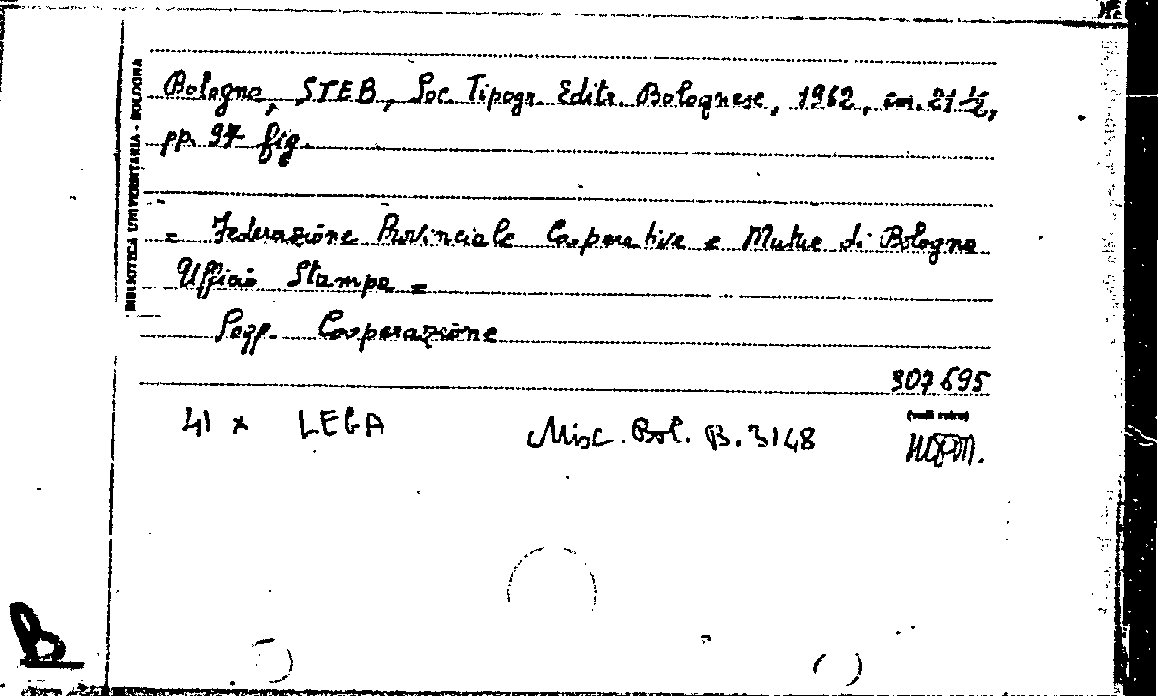 BIBLIOTECA UNIVERSITARIA - BOLOGNA
Bologna, STEB, Soc. Tipogr. Editr. Bolognese, 1962, cm. 21 ½,
pp. 97 fig.
= Federazione Provinciale Cooperative e Mutue di Bologna
Ufficio Stampa =
Sogg. Cooperazione
307695
(vedi retro)
41 x LEGA Misc. Bol. B. 3148
B